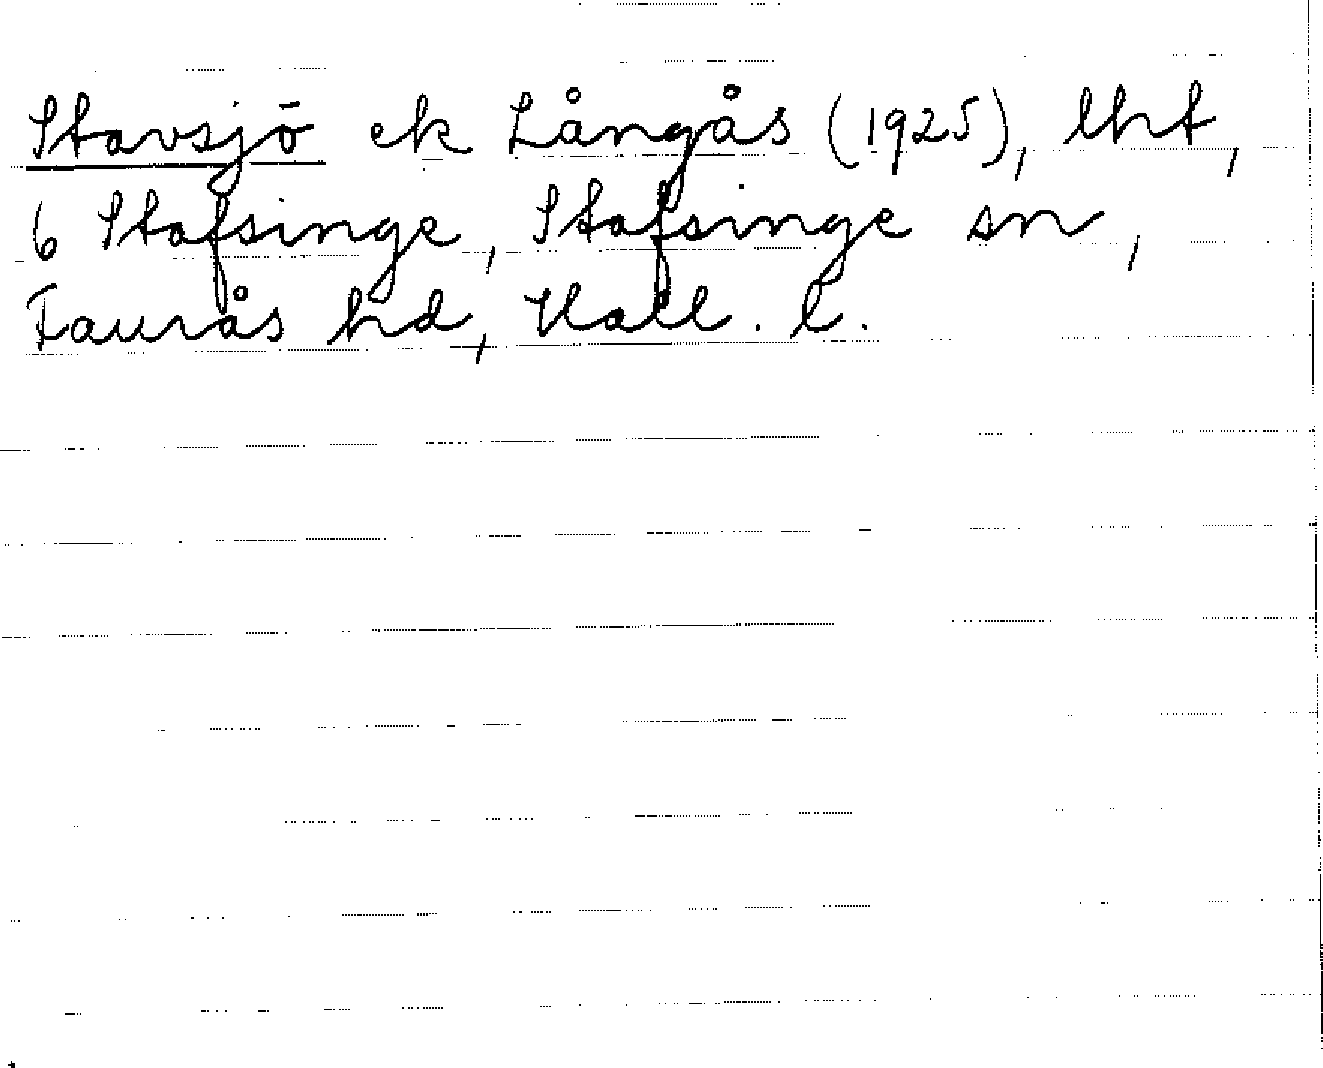 Stavsjö ek Långås (1925), lht,
6 Stafsinge, Stafsinge sn,
Faurås hd, Hall. l.